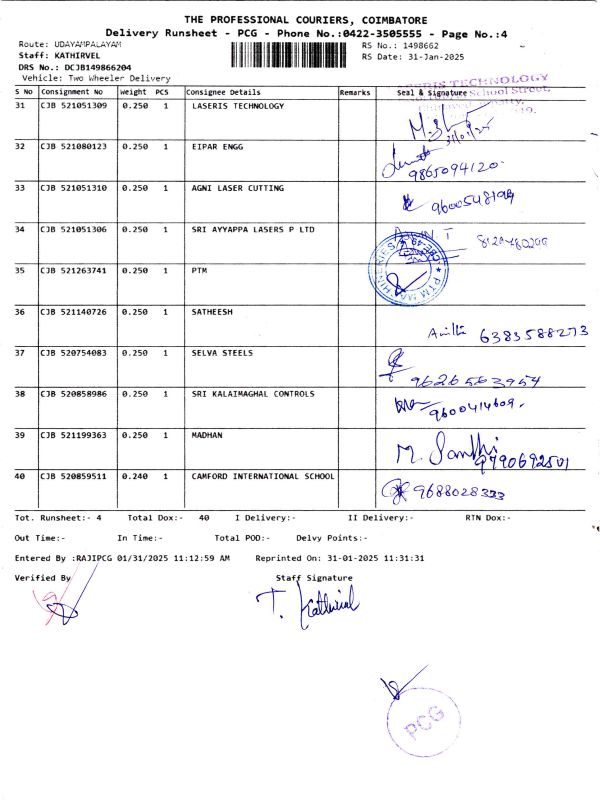 THE PROFESSIONAL COURIERS, COIMBATORE
Delivery Runsheet - PCG - Phone No.:0422-3505555 - Page No.:4
Route: UDAYAMPALAYAM RS No.: 1498662
Staff: KATHIRVEL RS Date: 31-Jan-2025
DRS No.: DCJB149866204
Vehicle: Two Wheeler Delivery
S No Consignment No Weight PCS Consignee Details Remarks Seal & Signature
31 CJB 521051309 0.250 1 LASERIS TECHNOLOGY
32 CJB 521080123 0.250 1 EIPAR ENGG 9865094120
33 CJB 521051310 0.250 1 AGNI LASER CUTTING
34 CJB 521051306 0.250 1 SRI AYYAPPA LASERS P LTD
35 CJB 521263741 0.250 1 PTM
PTM MACHINERIES
36 CJB 521140726 0.250 1 SATHEESH 6383588273
37 CJB 520754083 0.250 1 SELVA STEELS 9626563954
38 CJB 520858986 0.250 1 SRI KALAIMAGHAL CONTROLS 9600414609.
39 CJB 521199363 0.250 1 MADHAN M. Santhi 9790692501
40 CJB 520859511 0.240 1 CAMFORD INTERNATIONAL SCHOOL 9688028333
Tot. Runsheet:- 4 Total Dox:- 40 I Delivery:- II Delivery:- RTN Dox:-
Out Time:- In Time:- Total POD:- Delvy Points:-
Entered By :RAJIPCG 01/31/2025 11:12:59 AM Reprinted On: 31-01-2025 11:31:31
Verified By Staff Signature
T. Kathirvel
PCG